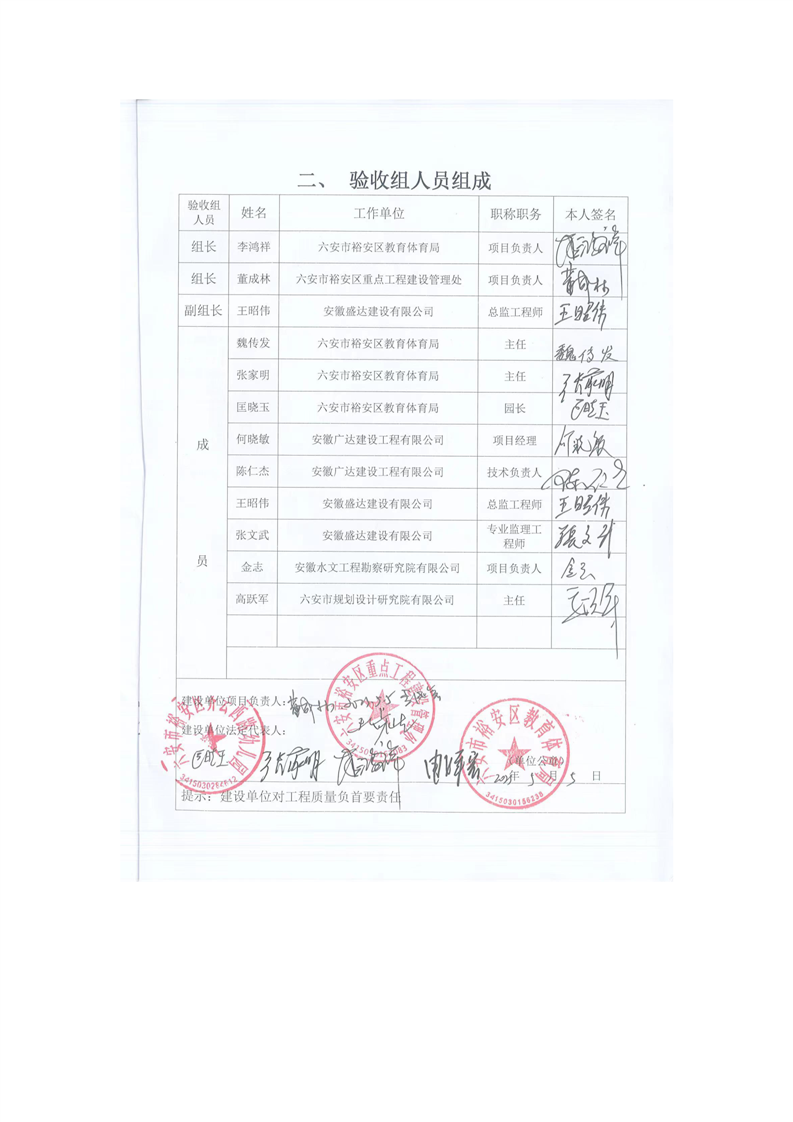 二、 验收组人员组成
验收组人员 姓名 工作单位 职称职务 本人签名
组长 李鸿祥 六安市裕安区教育体育局 项目负责人
组长 董成林 六安市裕安区重点工程建设管理处 项目负责人 董成林
副组长 王昭伟 安徽盛达建设有限公司 总监工程师 王昭伟
成员
魏传发 六安市裕安区教育体育局 主任 魏传发
张家明 六安市裕安区教育体育局 主任 张家明
匡晓玉 六安市裕安区教育体育局 园长 匡晓玉
何晓敏 安徽广达建设工程有限公司 项目经理 何晓敏
陈仁杰 安徽广达建设工程有限公司 技术负责人
王昭伟 安徽盛达建设有限公司 总监工程师 王昭伟
张文武 安徽盛达建设有限公司 专业监理工程师 張文武
金志 安徽水文工程勘察研究院有限公司 项目负责人 金志
高跃军 六安市规划设计研究院有限公司 主任
建设单位项目负责人: 董成林
建设单位法定代表人:
匡晓玉 张家明
5月5日
提示: 建设单位对工程质量负首要责任
六安市裕安区教育体育局
3415030186238